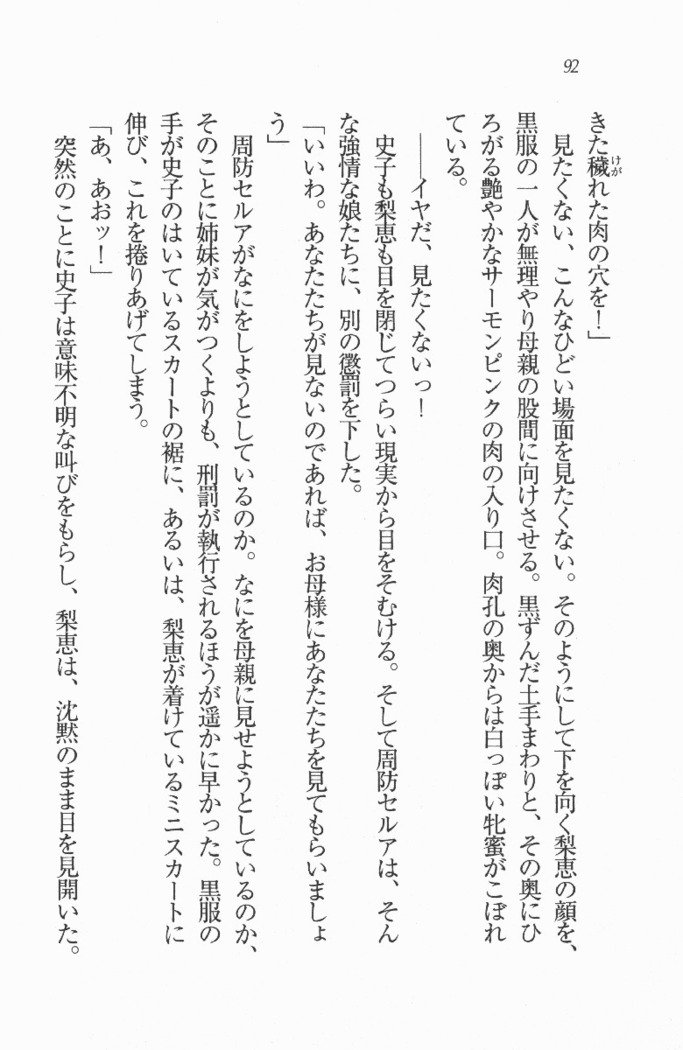 92
きた穢れた肉の穴を！」
けが
見たくない、こんなひどい場面を見たくない。そのようにして下を向く梨恵の顔を、
黒服の一人が無理やり母親の股間に向けさせる。黒ずんだ土手まわりと、その奥にひ
ろがる艶やかなサーモンピンクの肉の入り口。肉孔の奥からは白っぽい牝蜜がこぼれ
ている。
――イヤだ、見たくないっ！
史子も梨恵も目を閉じてつらい現実から目をそむける。そして周防セルアは、そん
な強情な娘たちに、別の懲罰を下した。
「いいわ。あなたたちが見ないのであれば、お母様にあなたたちを見てもらいましょ
う」
周防セルアがなにをしようとしているのか。なにを母親に見せようとしているのか、
そのことに姉妹が気がつくよりも、刑罰が執行されるほうが遥かに早かった。黒服の
手が史子のはいているスカートの裾に、あるいは、梨恵が着けているミニスカートに
伸び、これを捲りあげてしまう。
「あ、あおッ！」
突然のことに史子は意味不明な叫びをもらし、梨恵は、沈黙のまま目を見開いた。